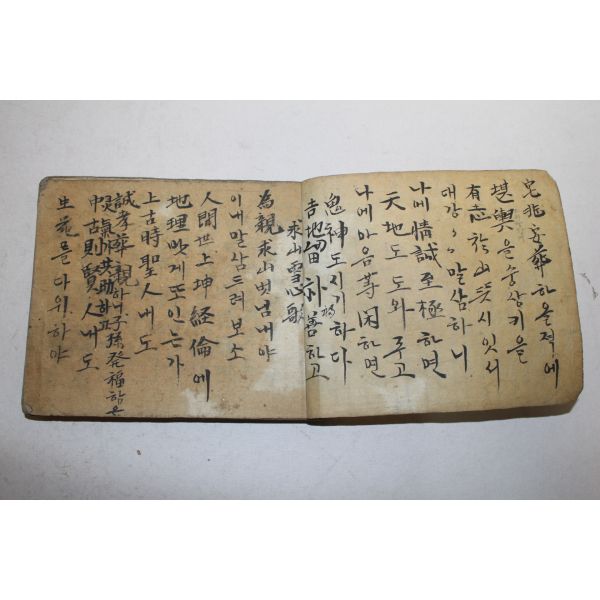 宅兆安葬하올적에
堪輿을숭상키을
有意한山뜻시잇셔
대강〃말삼하니
나에情誠至極하면
天地도도와쥬고
나에마음等閑하면
鬼神도시기하다
吉地留
善하고
求山雪心歌
為親求山벗님내야
이내말삼드려보소
人間世上坤経倫에
地理맛게또인는가
上古時聖人내도
誠孝葬親하니子孫発福하
中古則賢人내도
生花를다위하야